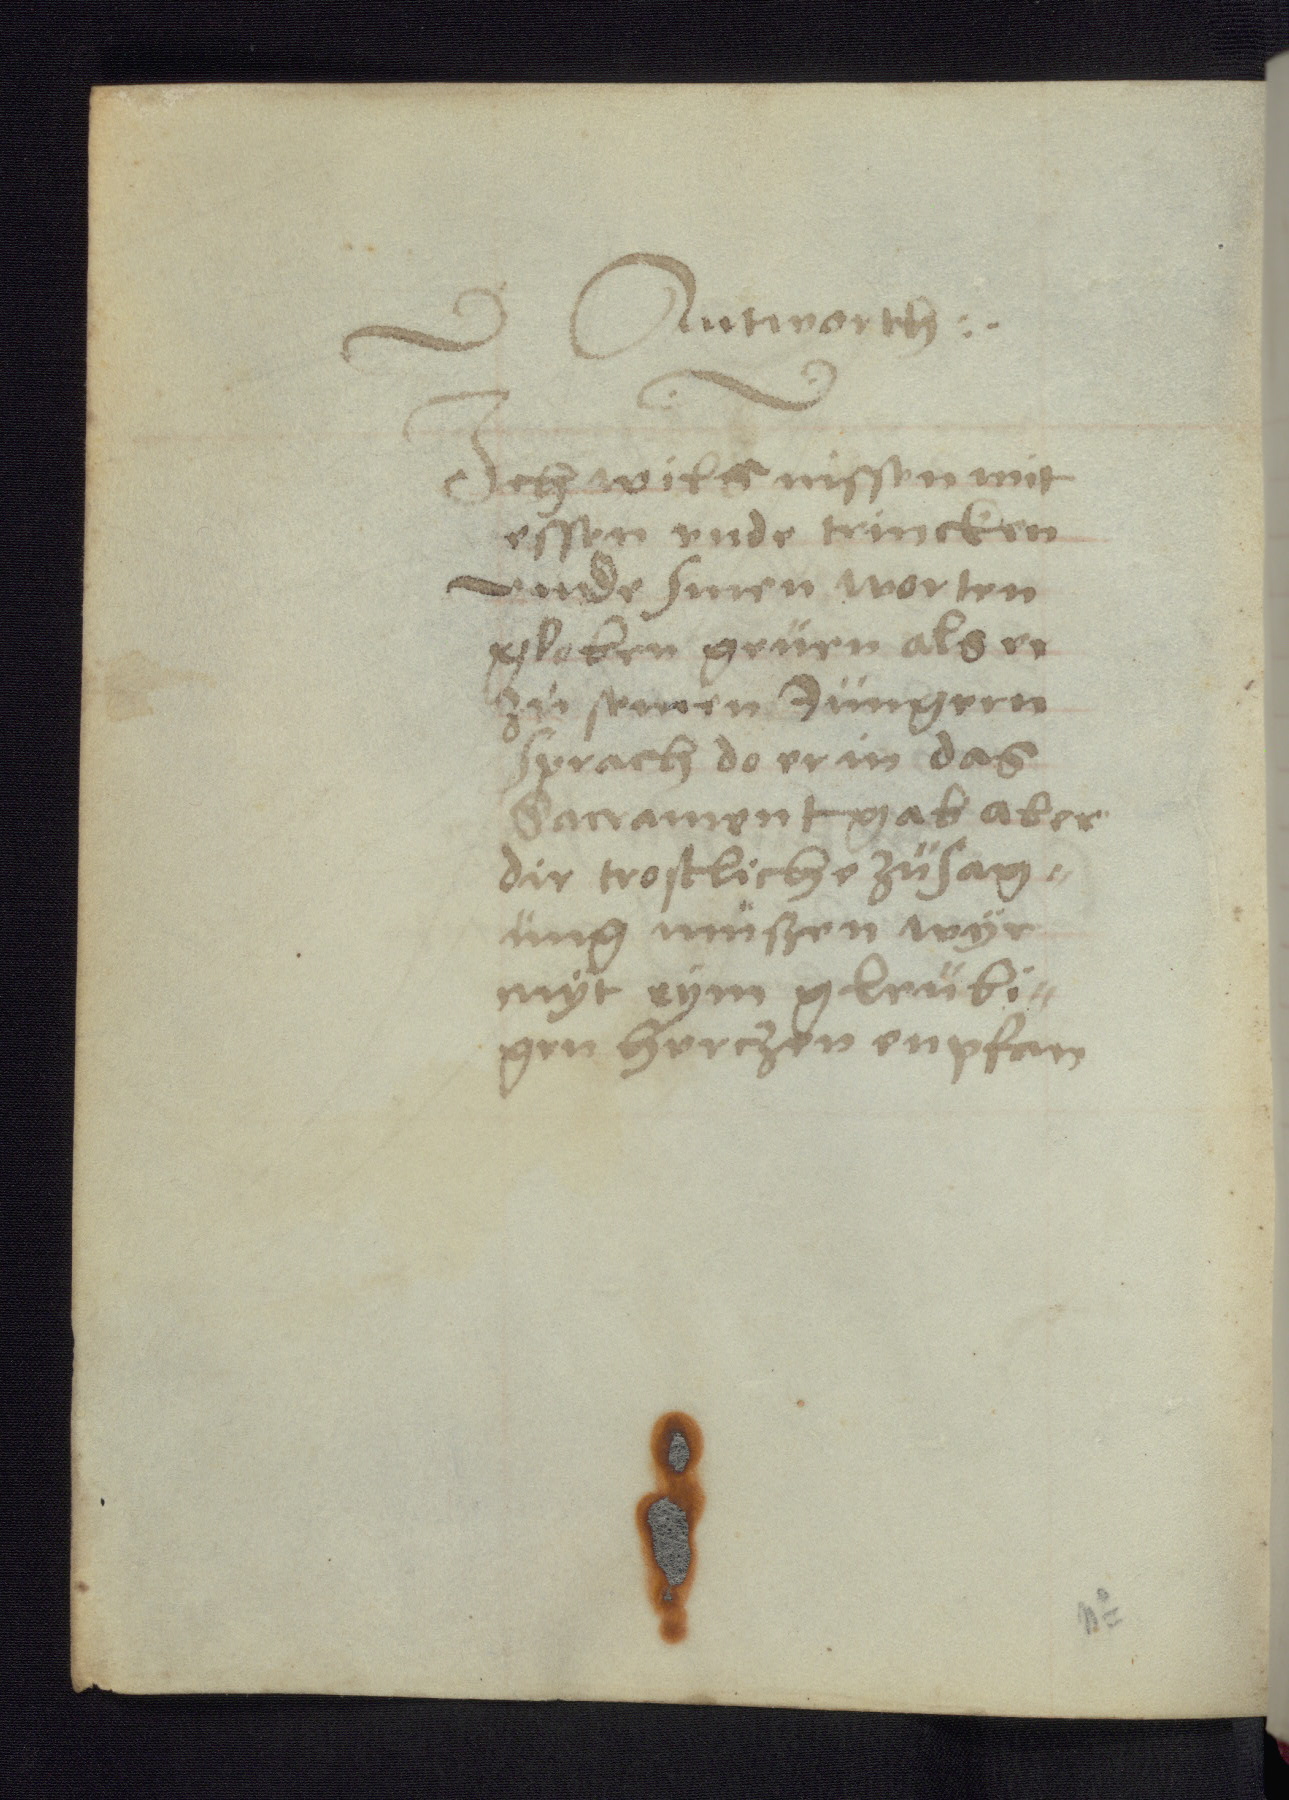 Antworth :.
Ich wils nissen mit
essen vnde trincken
vnde sinen worten
gloken geüen als er
zu seinen Jüngern
sprach do er in das
Sacrament gab aber
dir trostliche züsag=
üng müszen wyr
myt eym gleübi=
gen herczen enpfan